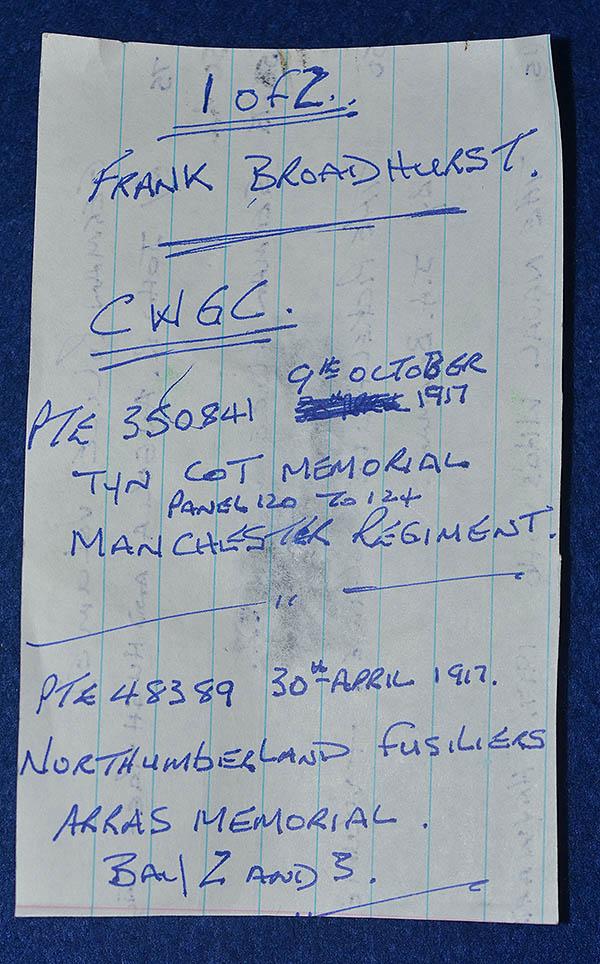 1 of 2.
FRANK BROADHURST.
CWGC.
9TH OCTOBER
PTE 350841 1917
TYN COT MEMORIAL
PANEL 120 TO 124
MANCHESTER REGIMENT.
"
PTE 48389 30th APRIL 1917.
NORTHUMBERLAND FUSILIERS
ARRAS MEMORIAL.
BAY 2 AND 3.
"